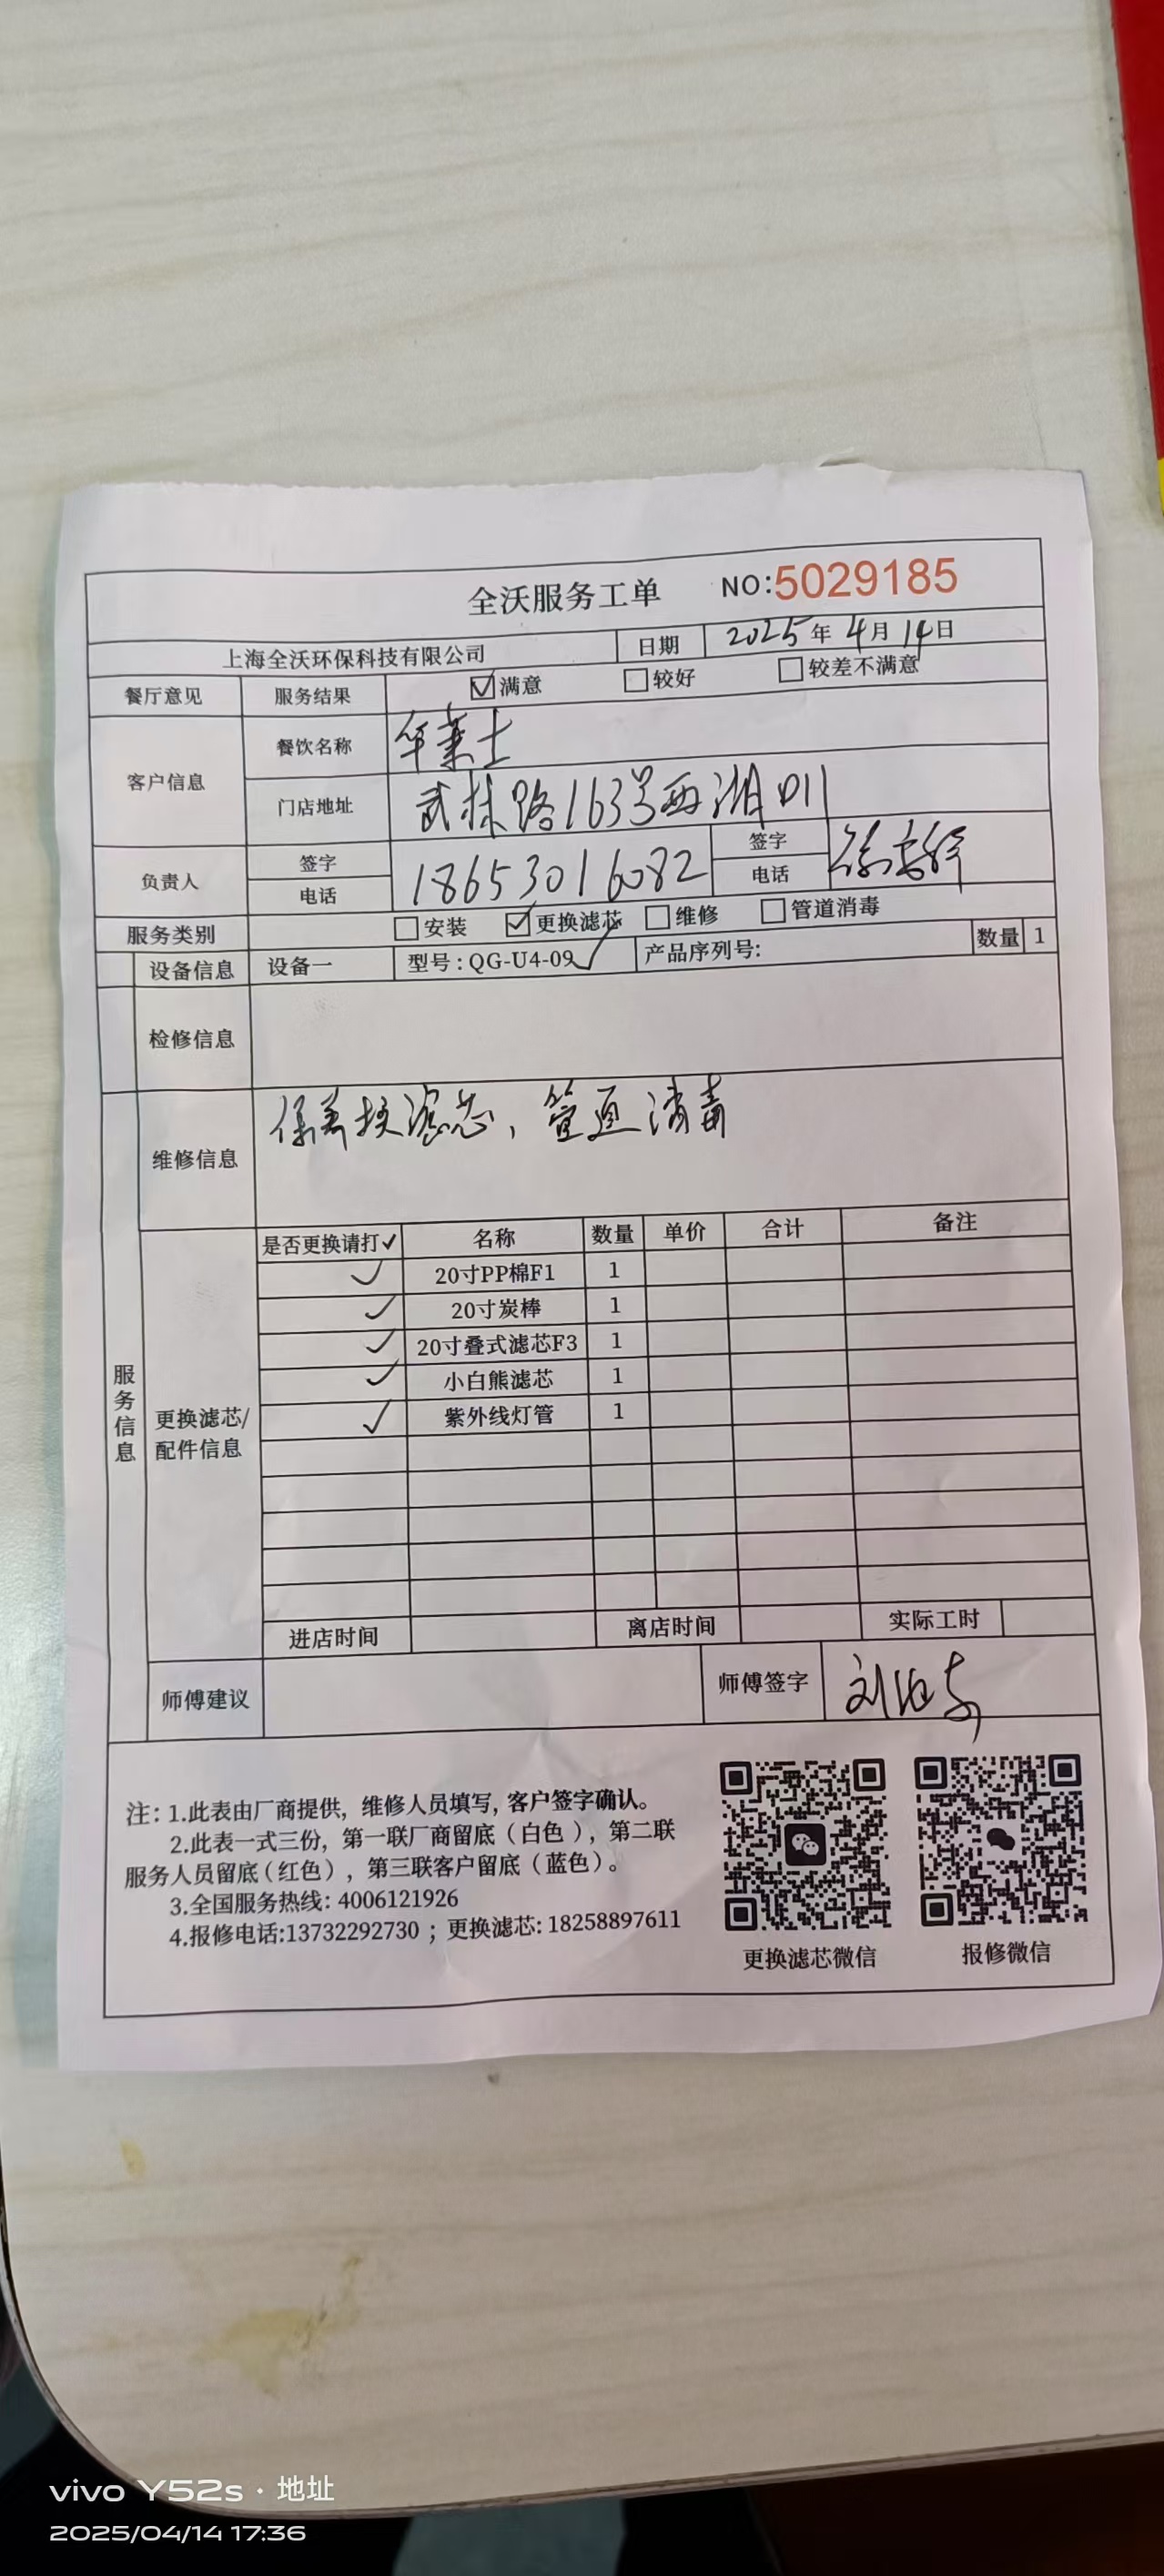 全沃服务工单 NO:5029185
上海全沃环保科技有限公司 日期 2025年 4月 14日
餐厅意见 服务结果 ☑满意 □较好 □较差不满意
客户信息 餐饮名称 华莱士
门店地址 武林路163号西湖
负责人 签字 电话 18653016082 签字 电话
服务类别 □安装 ☑更换滤芯 □维修 □管道消毒
设备信息 设备一 型号：QG-U4-09 ✓ 产品序列号: 数量 1
检修信息
维修信息 保养换滤芯，管道消毒
服务信息
更换滤芯/配件信息
是否更换请打✓ 名称 数量 单价 合计 备注
✓ 20寸PP棉F1 1
✓ 20寸炭棒 1
✓ 20寸叠式滤芯F3 1
✓ 小白熊滤芯 1
✓ 紫外线灯管 1
进店时间 离店时间 实际工时
师傅建议 师傅签字 刘
注：1.此表由厂商提供，维修人员填写，客户签字确认。
2.此表一式三份，第一联厂商留底（白色），第二联
服务人员留底（红色），第三联客户留底（蓝色）。
3.全国服务热线：4006121926
4.报修电话:13732292730；更换滤芯：18258897611
更换滤芯微信 报修微信
vivo Y52s · 地址
2025/04/14 17:36